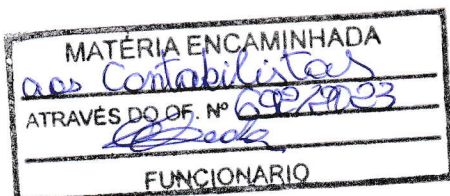 MATÉRIA ENCAMINHADA
aos Contabilistas
ATRAVÉS DO OF. Nº 692/2023
FUNCIONARIO